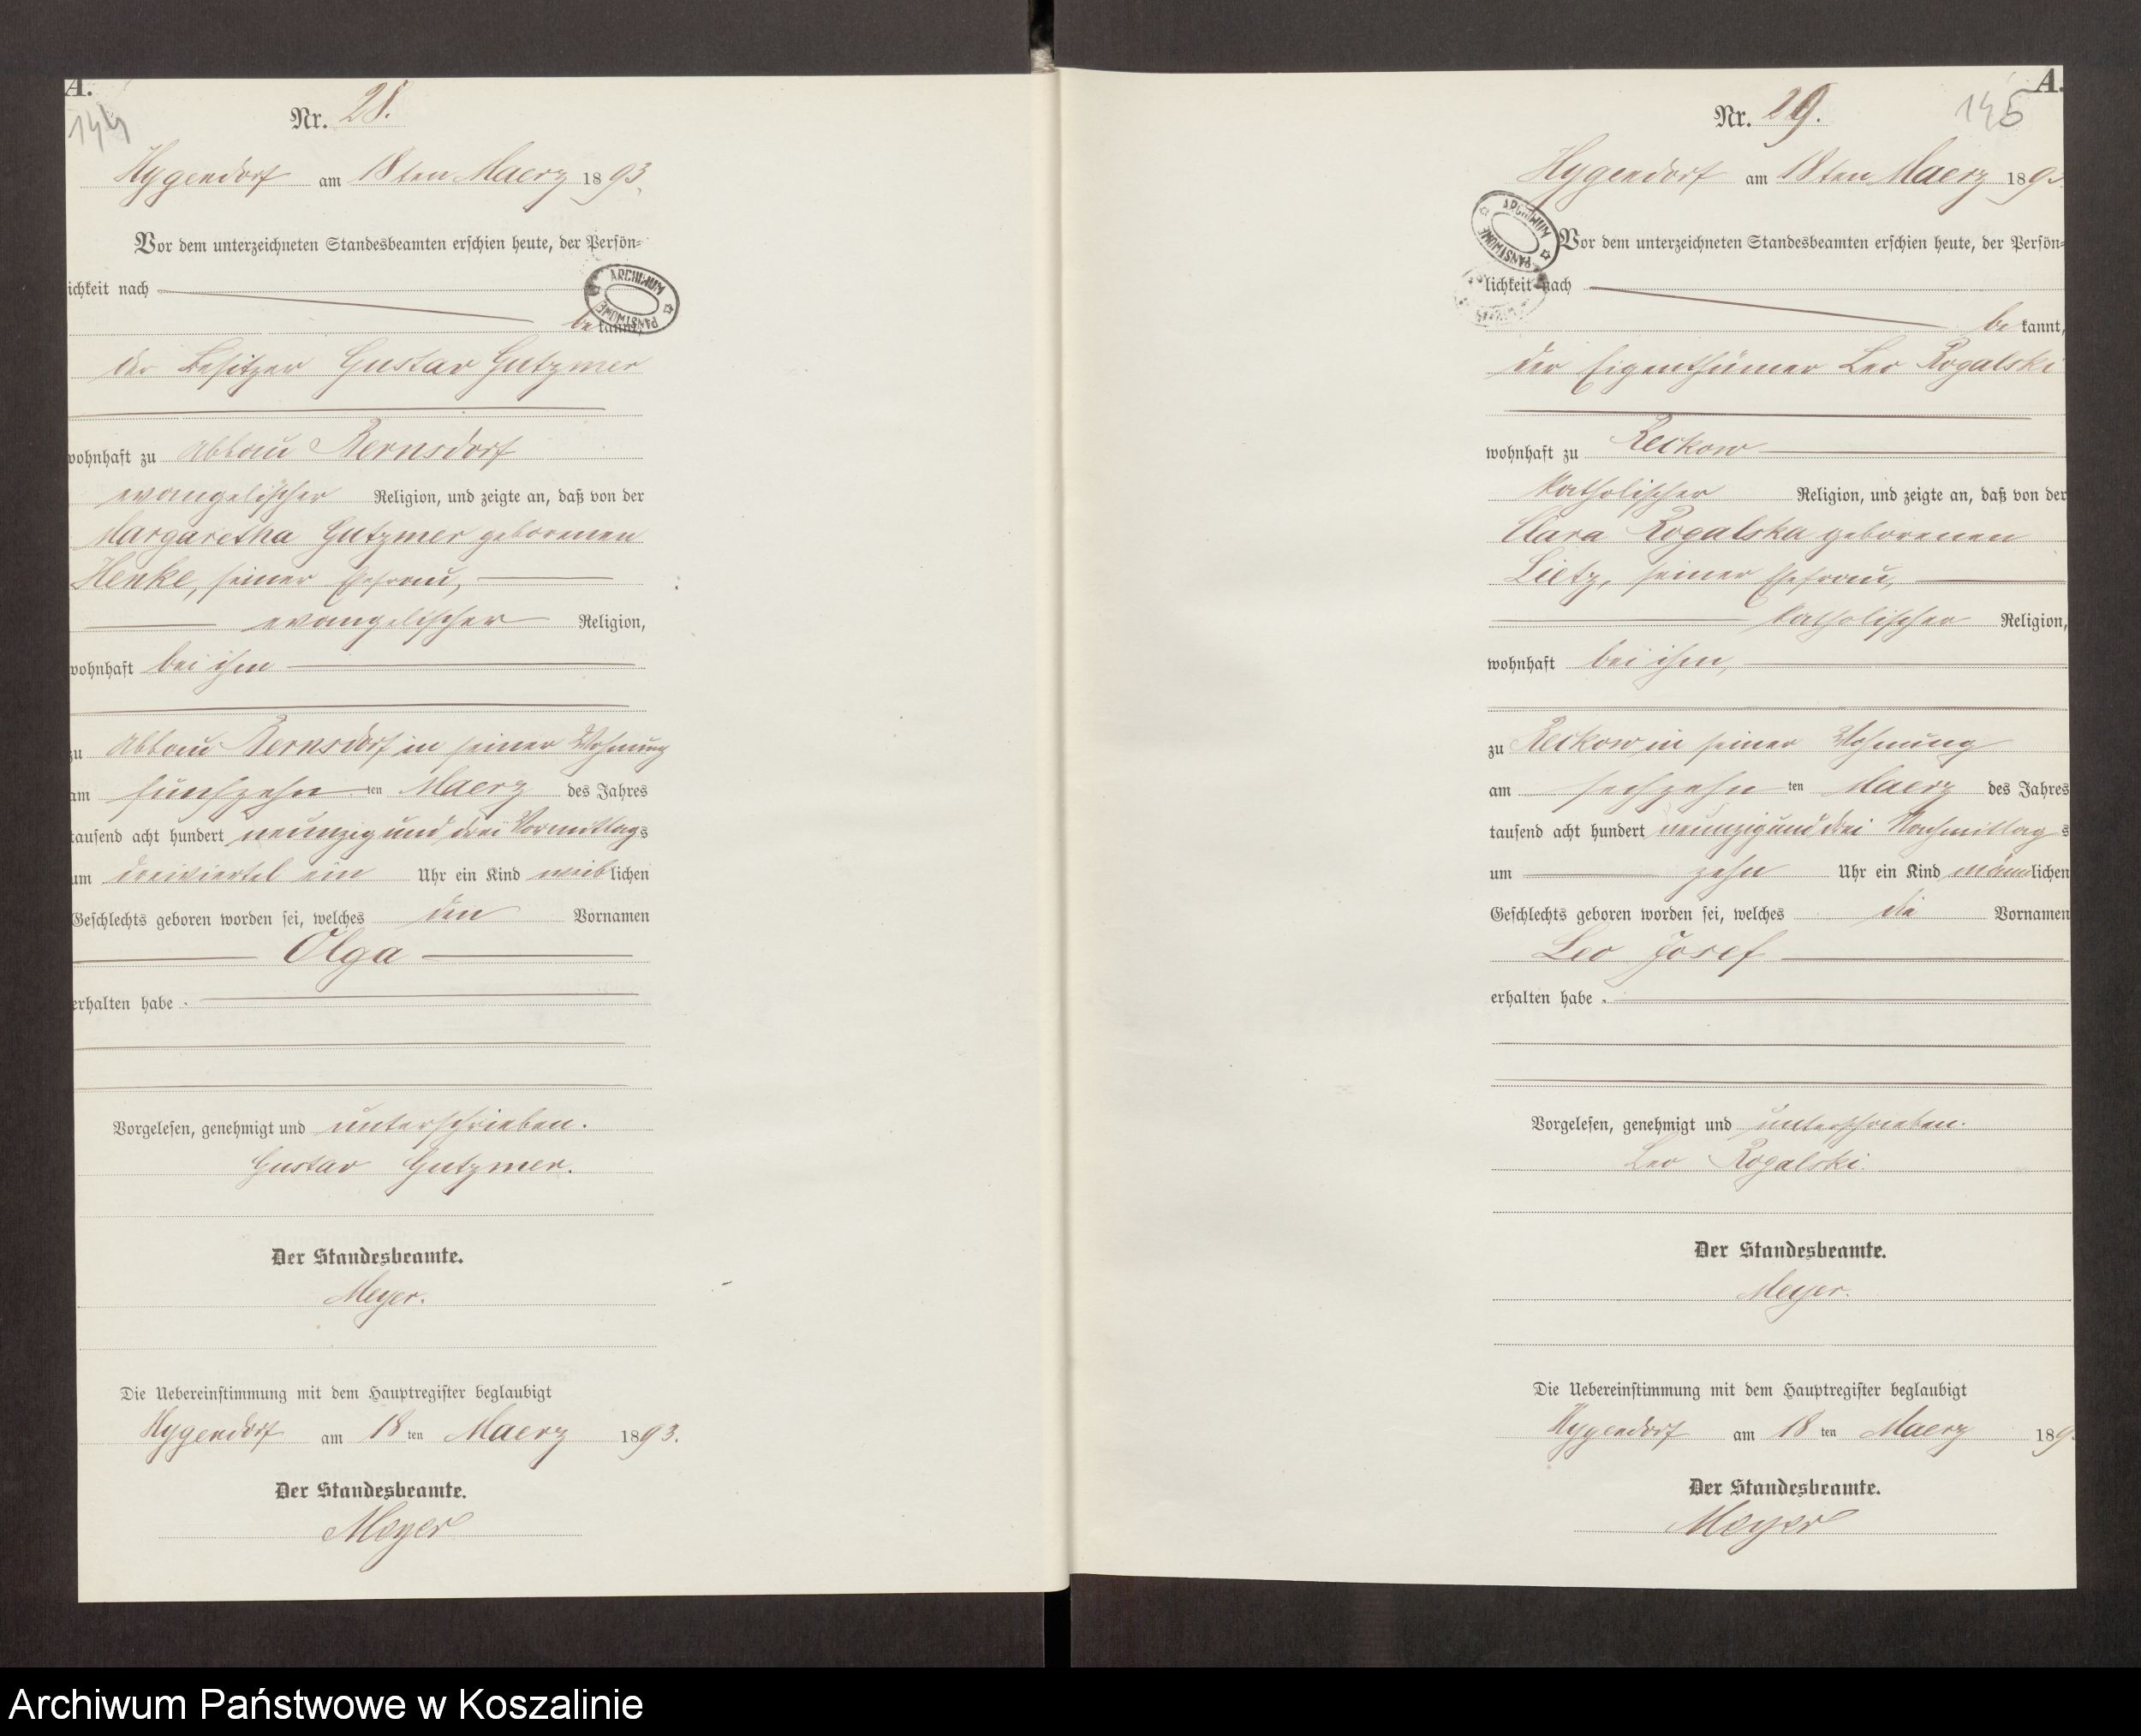 A.
144
Nr. 28.
Hygendorf am 18ten Maerz 1893.
Vor dem unterzeichneten Standesbeamten erschien heute, der Persön-
ichkeit nach
be kannt,
der Besitzer Gustav Gutzmer
wohnhaft zu Abbau Bernsdorf
evangelischer Religion, und zeigte an, daß von der
Margaretha Gutzmer geborenen
Henke, seiner Ehefrau,
evangelischer Religion,
wohnhaft bei ihm
zu Abbau Bernsdorf in seiner Wohnung
am fünfzehn ten Maerz des Jahres
tausend acht hundert neunzig und drei Vormittags
um dreiviertel ein Uhr ein Kind weiblichen
Geschlechts geboren worden sei, welches den Vornamen
Olga
erhalten habe.
Vorgelesen, genehmigt und unterschrieben.
Gustav Gutzmer.
Der Standesbeamte.
Meyer.
Die Uebereinstimmung mit dem Hauptregister beglaubigt
Hygendorf am 18 ten Maerz 1893.
Der Standesbeamte.
Meyer
ARCHIWUM PAŃSTWOWE
A.
145
Nr. 29.
Hygendorf am 18ten Maerz 189
Vor dem unterzeichneten Standesbeamten erschien heute, der Persön-
lichkeit nach
be kannt,
der Eigenthümer Leo Rogalski
wohnhaft zu Reckow
katholischer Religion, und zeigte an, daß von der
Clara Rogalska geborenen
Lietz, seiner Ehefrau,
katholischer Religion,
wohnhaft bei ihm,
zu Reckow in seiner Wohnung
am sechzehn ten Maerz des Jahres
tausend acht hundert neunzig und drei Nachmittags
um zehn Uhr ein Kind männlichen
Geschlechts geboren worden sei, welches die Vornamen
Leo Josef
erhalten habe.
Vorgelesen, genehmigt und unterschrieben.
Leo Rogalski.
Der Standesbeamte.
Meyer.
Die Uebereinstimmung mit dem Hauptregister beglaubigt
Hygendorf am 18 ten Maerz 189
Der Standesbeamte.
Meyer
ARCHIWUM PAŃSTWOWE
Archiwum Państwowe w Koszalinie